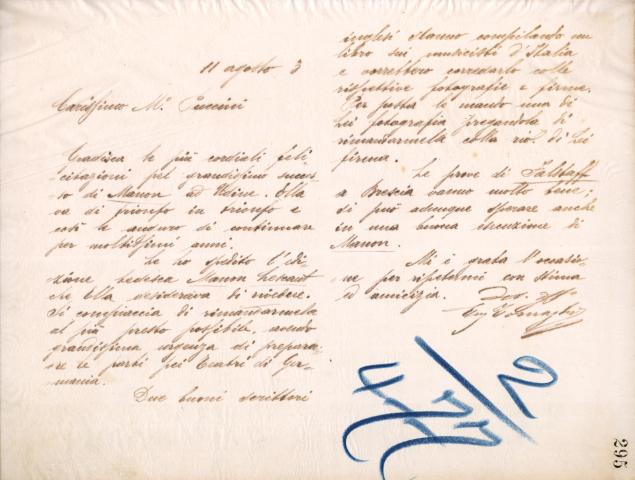 11 agosto 3
Carissimo Mº Puccini
Gradisca le più cordiali feli-
citazioni pel grandissimo succes-
so di Manon ad Udine. Ella
va di trionfo in trionfo e
così le auguro di continuare
per moltissimi anni.
Le ho spedito l'edi-
zione tedesca Manon Lescaut
che Ella desiderava di rivedere.
Si compiaccia di rimandarmela
al più presto possibile, avendo
grandissima urgenza di prepara-
re le parti pei Teatri di Ger-
mania.
Due buoni scrittori
inglesi stanno compilando un
libro sui musicisti d'Italia
e vorrebbero corredarlo colle
rispettive fotografie e firme.
Per posta le mando una di
Lei fotografia pregandola di
rimandarmela colla di Lei
firma.
Le prove di Falstaff
a Brescia vanno molto bene;
si può adunque sperare anche
in una buona esecuzione di
Manon.
Mi è grata l'occasio-
ne per ripetermi con stima
ed amicizia.
2/77
477
295